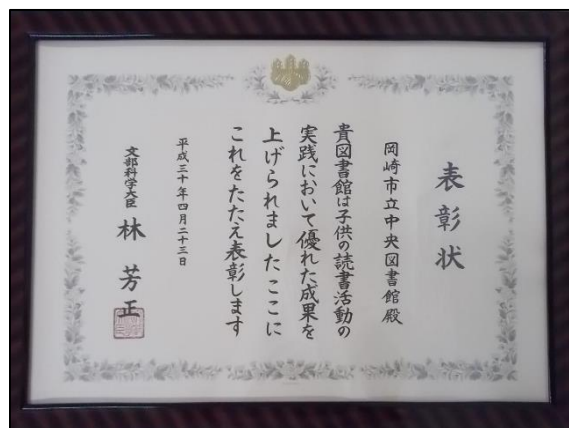 表彰状
岡崎市立中央図書館殿
貴図書館は子供の読書活動の
実践において優れた成果を
上げられましたここに
これをたたえ表彰します
平成三十年四月二十三日
文部科学大臣 林 芳正